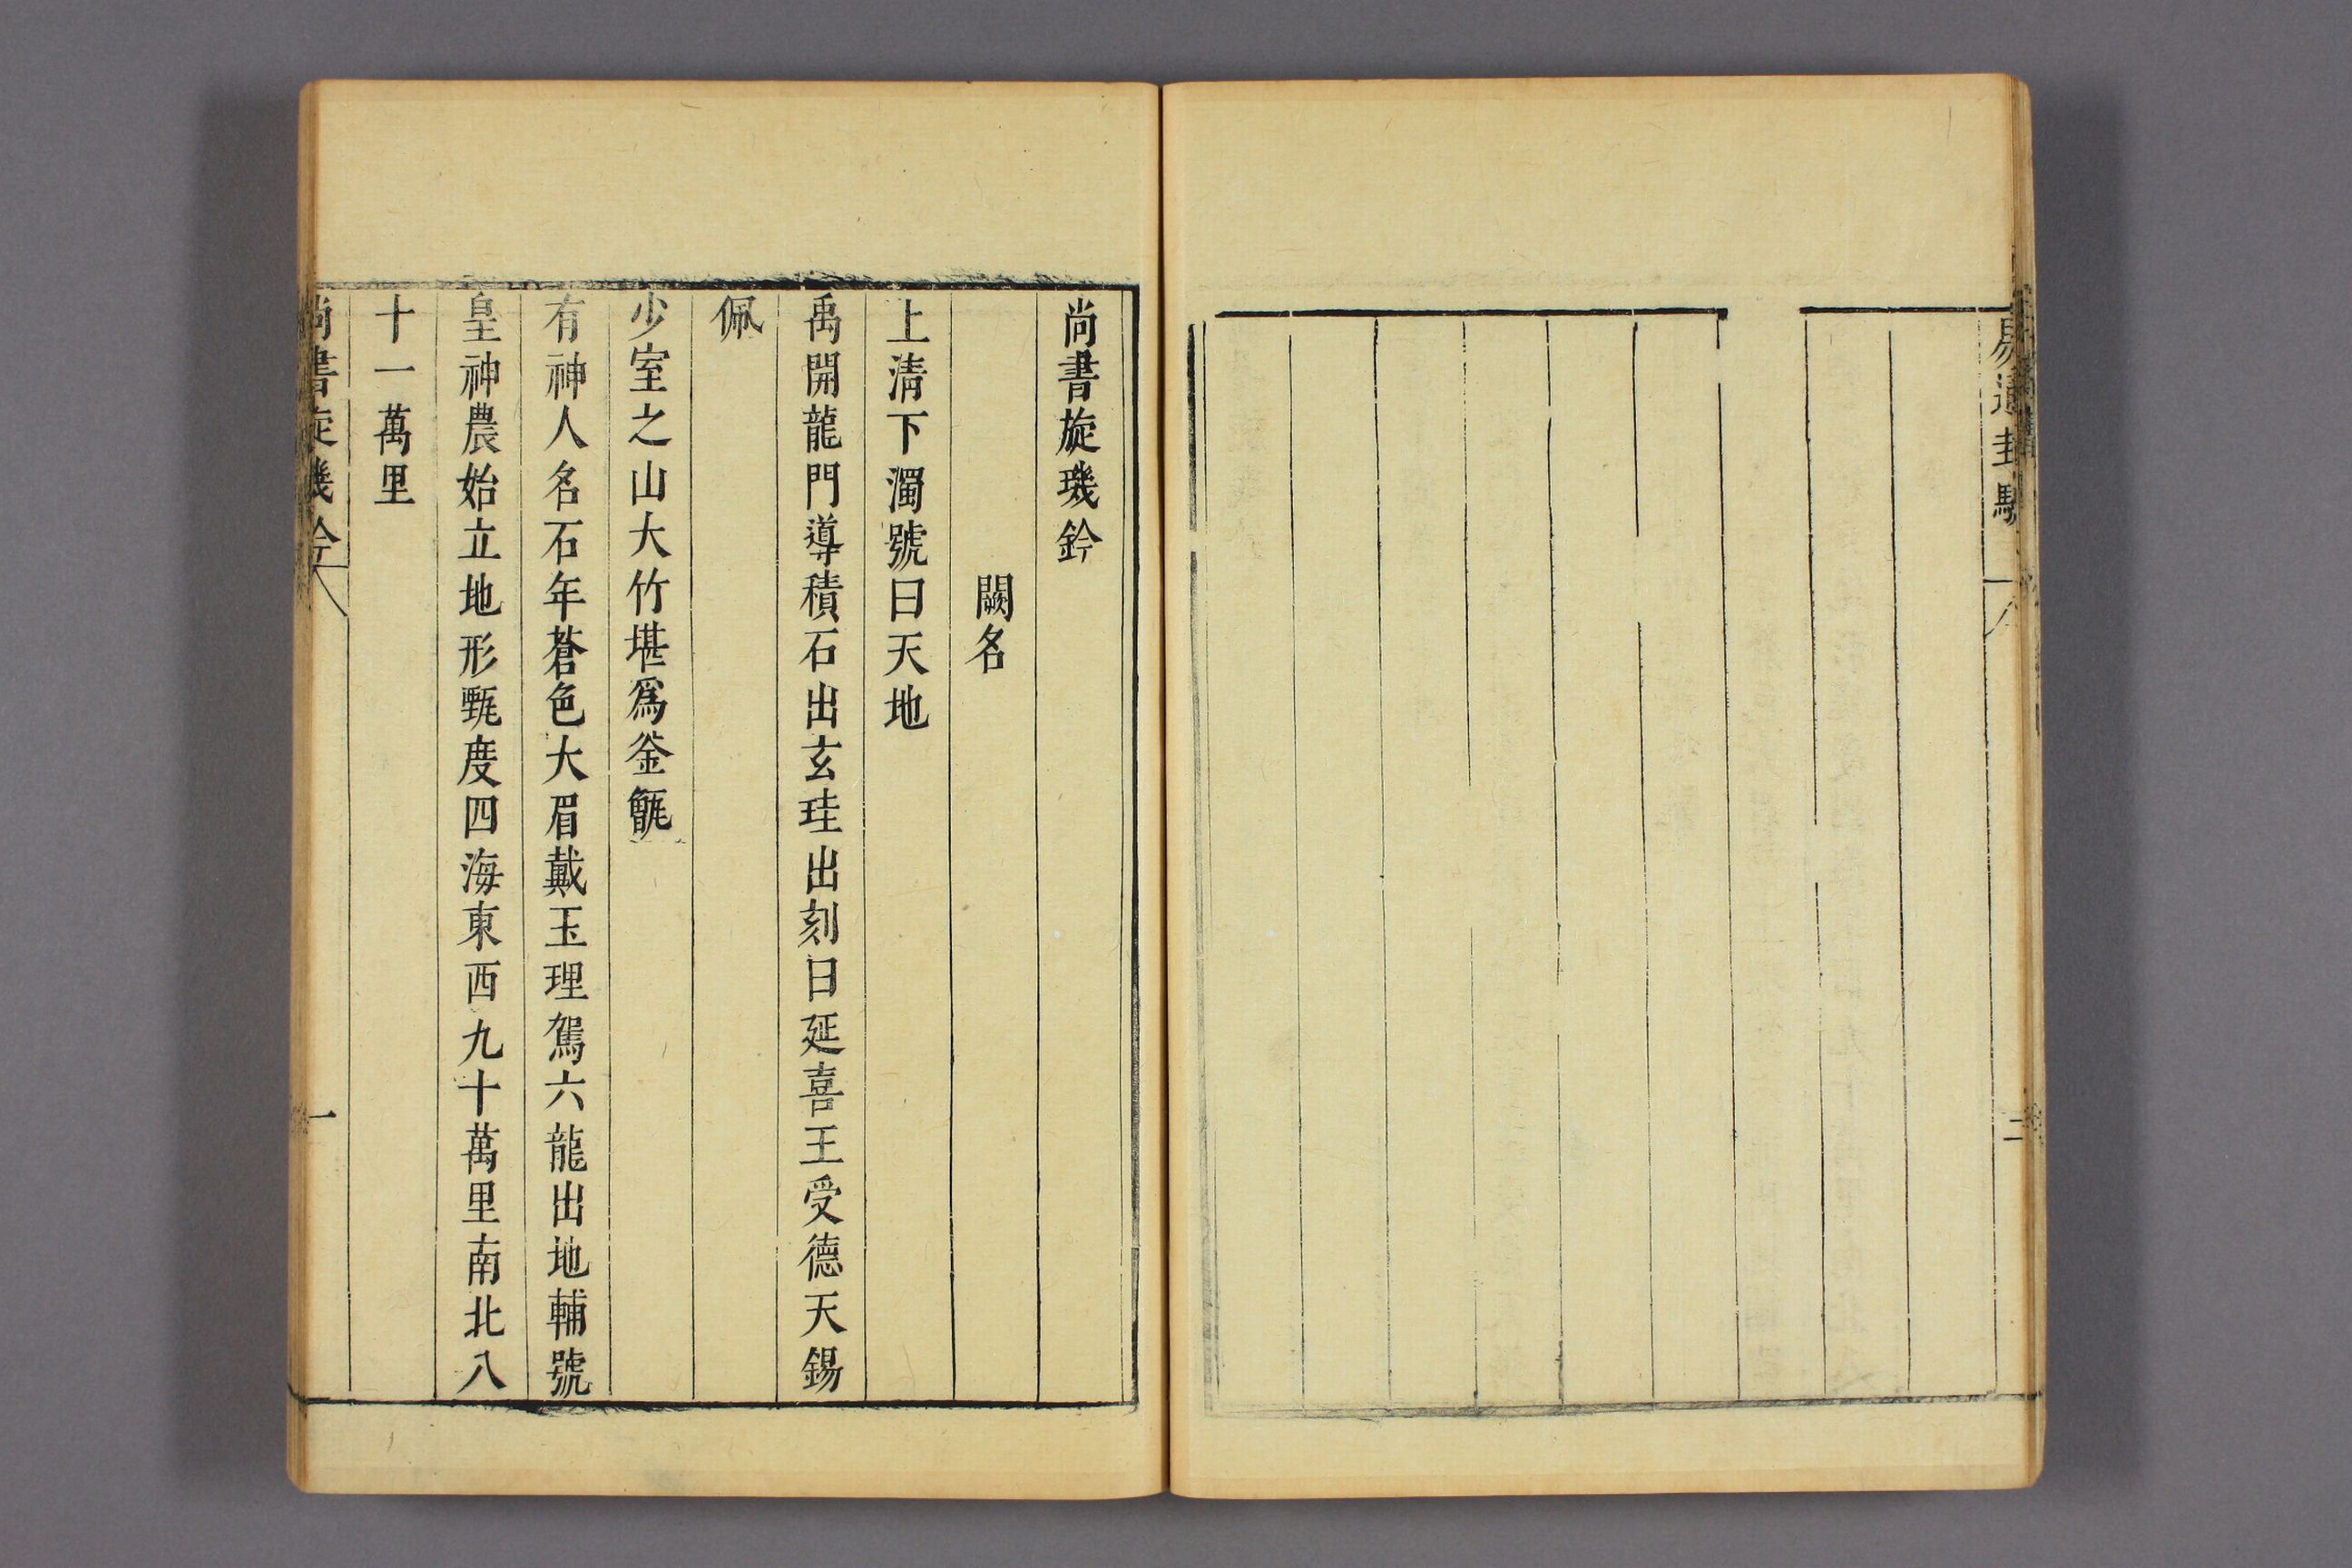 易通卦驗
二
尚書旋璣鈐
闕名
上清下濁號曰天地
禹開龍門導積石出玄珪出刻曰延喜王受德天錫
佩
少室之山大竹堪爲釜甑
有神人名石年蒼色大眉戴玉理駕六龍出地輔號
皇神農始立地形甄度四海東西九十萬里南北八
十一萬里
尚書旋璣鈐
一